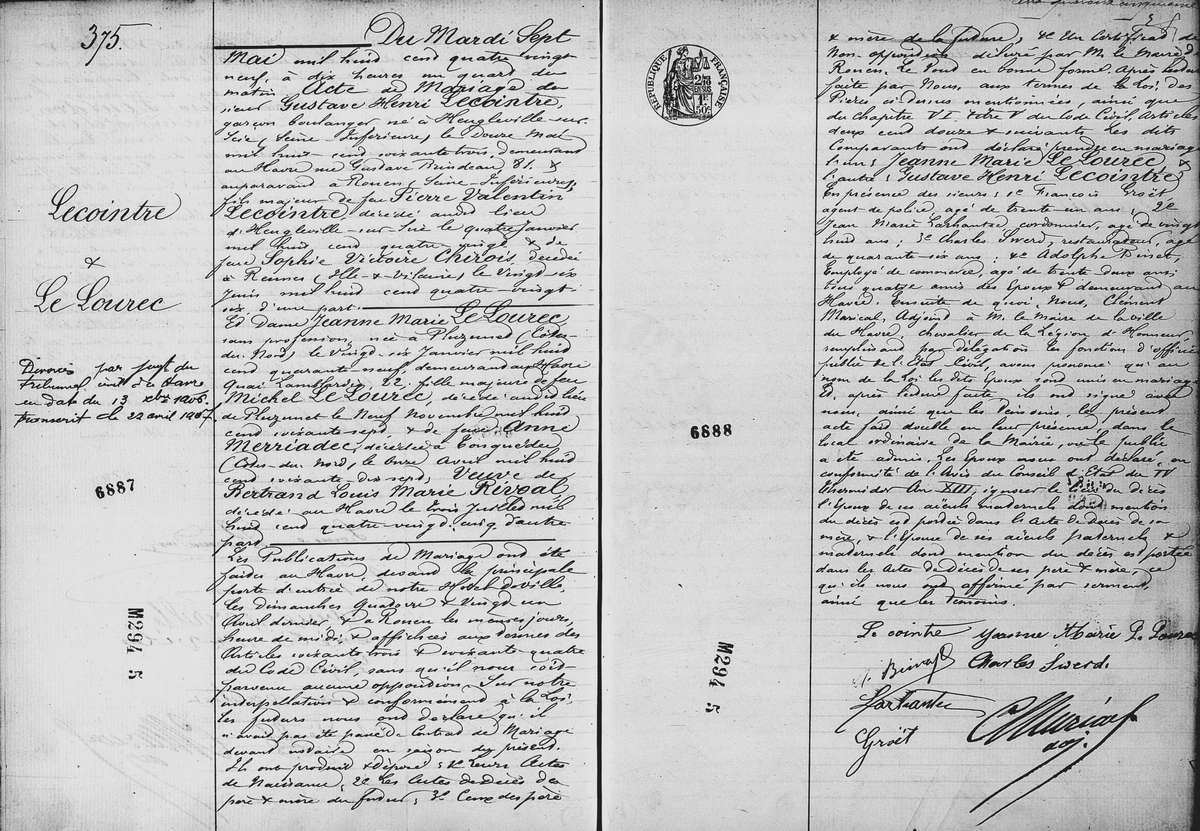 375.
Lecointre
&
Le Lourec
Divorcés par jugt du
tribunal civil du Havre
en date du 13 Xbre 1906
transcrit le 22 avril 1907.
6887
M294 5
Du Mardi Sept
Mai mil huit cent quatre vingt
neuf, à dix heures un quart du
matin, Acte de Mariage de
sieur Gustave Henri Lecointre,
garçon boulanger né à Heugleville-sur-
Scie, Seine-Inférieure, le Douze Mai
mil huit cent soixante trois, demeurant
au Havre rue Gustave Brindeau 81. &
auparavant à Rouen, Seine-Inférieure,
fils majeur de feu Pierre Valentin
Lecointre, décédé audit lieu
d'Heugleville-sur-Scie le quatre janvier
mil huit cent quatre vingt & de
feue Sophie Victoire Chirois, décédée
à Rennes (Ille-&-Vilaine) le vingt six
Juin mil huit cent quatre-vingt
six, d'une part.
Et Dame Jeanne Marie Le Lourec
sans profession, née à Pluzunet (Côtes
du Nord) le vingt six Janvier mil huit
cent quarante neuf, demeurant au Havre
Quai Lamblardie, 22, fille majeure de feu
Michel Le Lourec, décédé audit lieu
de Pluzunet le Neuf Novembre mil huit
cent soixante sept, & de feue Anne
Merriadec, décédée à Tonquédec
(Côtes-du-Nord, le onze Avril mil huit
cent soixante dix sept, Veuve de
Bertrand Louis Marie Rivoal,
décédé au Havre le trois Juillet mil
huit cent quatre-vingt-cinq, d'autre
part.
Les Publications de Mariage ont été
faites au Havre, devant la principale
porte d'entrée de notre Hôtel de Ville,
les dimanches Quatorze & Vingt un
Avril dernier & à Rouen les mêmes jours,
heure de midi, & affichées aux termes des
Articles soixante trois & soixante quatre
du Code Civil, sans qu'il nous soit
parvenu aucune opposition. Sur notre
interpellation & conformément à la Loi,
les futurs nous ont déclaré qu'il
n'avait pas été passé de Contrat de Mariage
devant notaire en raison du présent.
Ils ont produit & déposé: 1e Leurs Actes
de Naissance, 2e Les Actes de décès des
père & mère du futur; 3e Ceux des père
REPUBLIQUE FRANÇAISE
6888
M294 5
& mère de la future; 4e Un Certificat de
Non-opposition délivré par M. le Maire de
Rouen. Le tout en bonne forme, après lecture
faite par Nous, aux termes de la Loi, des
Pièces ci-dessus mentionnées, ainsi que
du Chapitre VI titre V du Code Civil, Articles
deux cent douze & suivants. Les dits
Comparants ont déclaré prendre en mariage
l'un: Jeanne Marie Le Lourec &
l'autre: Gustave Henri Lecointre
En présence des sieurs: 1e François Groët
agent de police, âgé de trente-un ans; 2e
Jean Marie Larhantec, cordonnier, âgé de vingt
huit ans; 3e Charles Swerd, restaurateur, âgé
de quarante-six ans; 4e Adolphe
Employé de commerce, âgé de trente deux ans;
tous quatre amis des Epoux & demeurant au
Havre. Ensuite de quoi, Nous, Clément
Marical, Adjoint à M. le Maire de la ville
du Havre, chevalier de la Légion d'Honneur
remplissant par délégation les fonctions d'officier
public de l'Etat Civil, avons prononcé qu'au
nom de la Loi les dits Epoux sont unis en mariage
Et, après lecture faite, ils ont signé avec
nous, ainsi que les témoins, le présent
acte fait double en leur présence, dans le
local ordinaire de la Mairie, où le public
a été admis. Les Epoux nous ont déclaré en
conformité de l'Avis du Conseil d'Etat du IV
Thermidor An XIII ignorer le lieu du décès
l'Epoux de ses aïeuls maternels dont mention
du décès est portée dans l'Acte de Décès de sa
mère, & l'Epouse de ses aïeuls paternels &
maternels dont mention du décès est portée
dans les Actes de Décès de ses père & mère, ce
qu'ils nous ont affirmé par serment,
ainsi que les témoins.
Le cointre
Charles Swerd.
Larhantec
Groët
CMarical
adj.